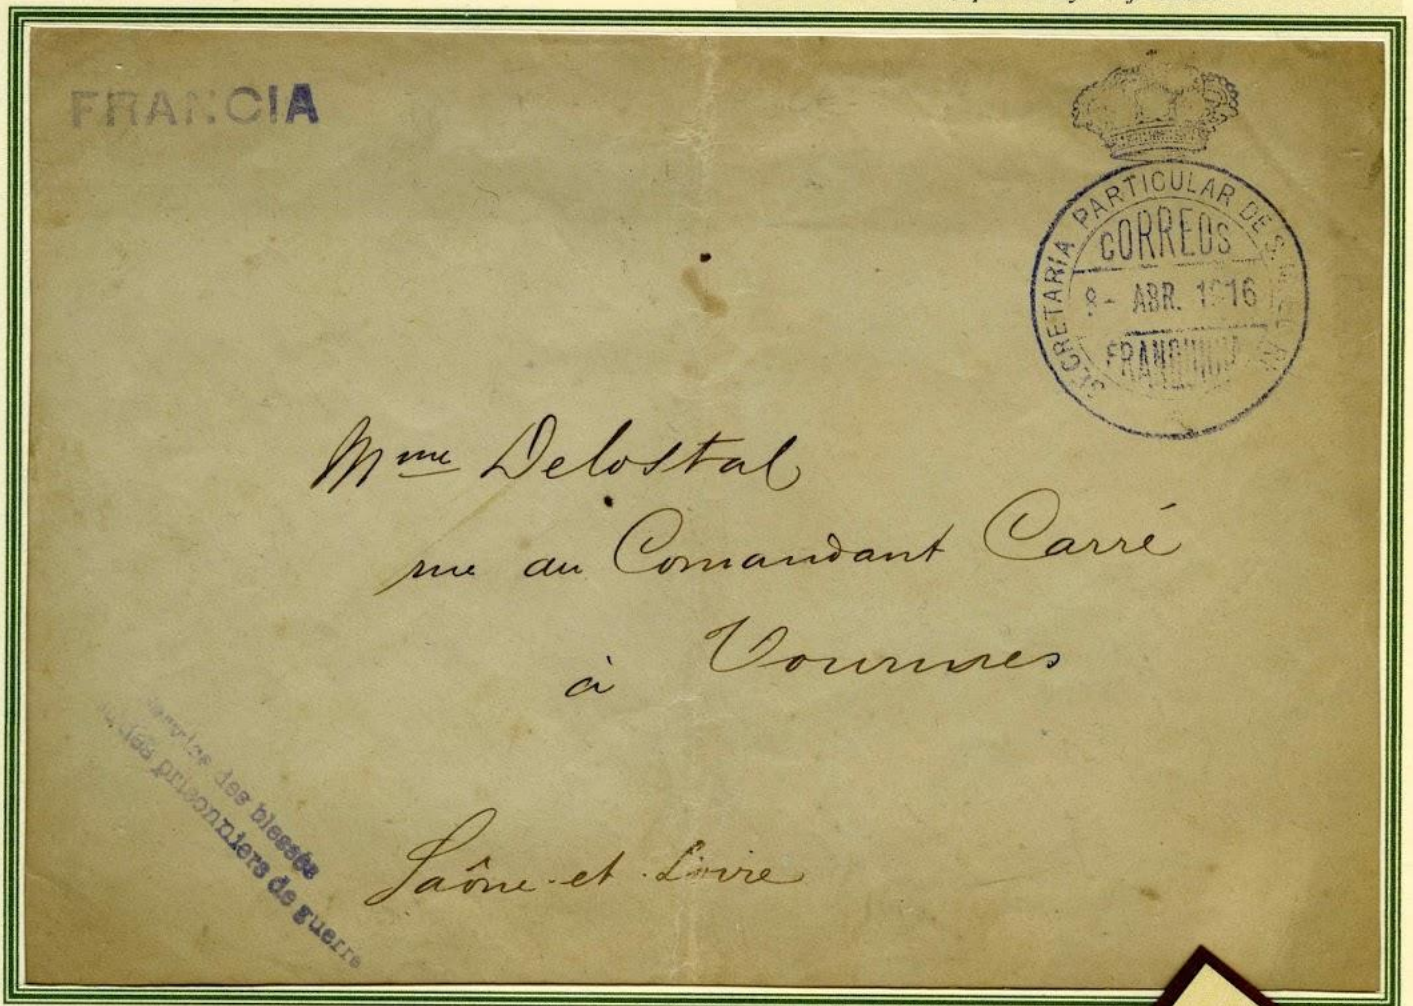 FRANCIA
SECRETARIA PARTICULAR DE S. M. EL
CORREOS
8- ABR. 1916
FRANQUICIA
Mme Delostal
rue du Comandant Carré
à Tournus
Saône-et-Loire
Service des blessés
des prisonniers de guerre